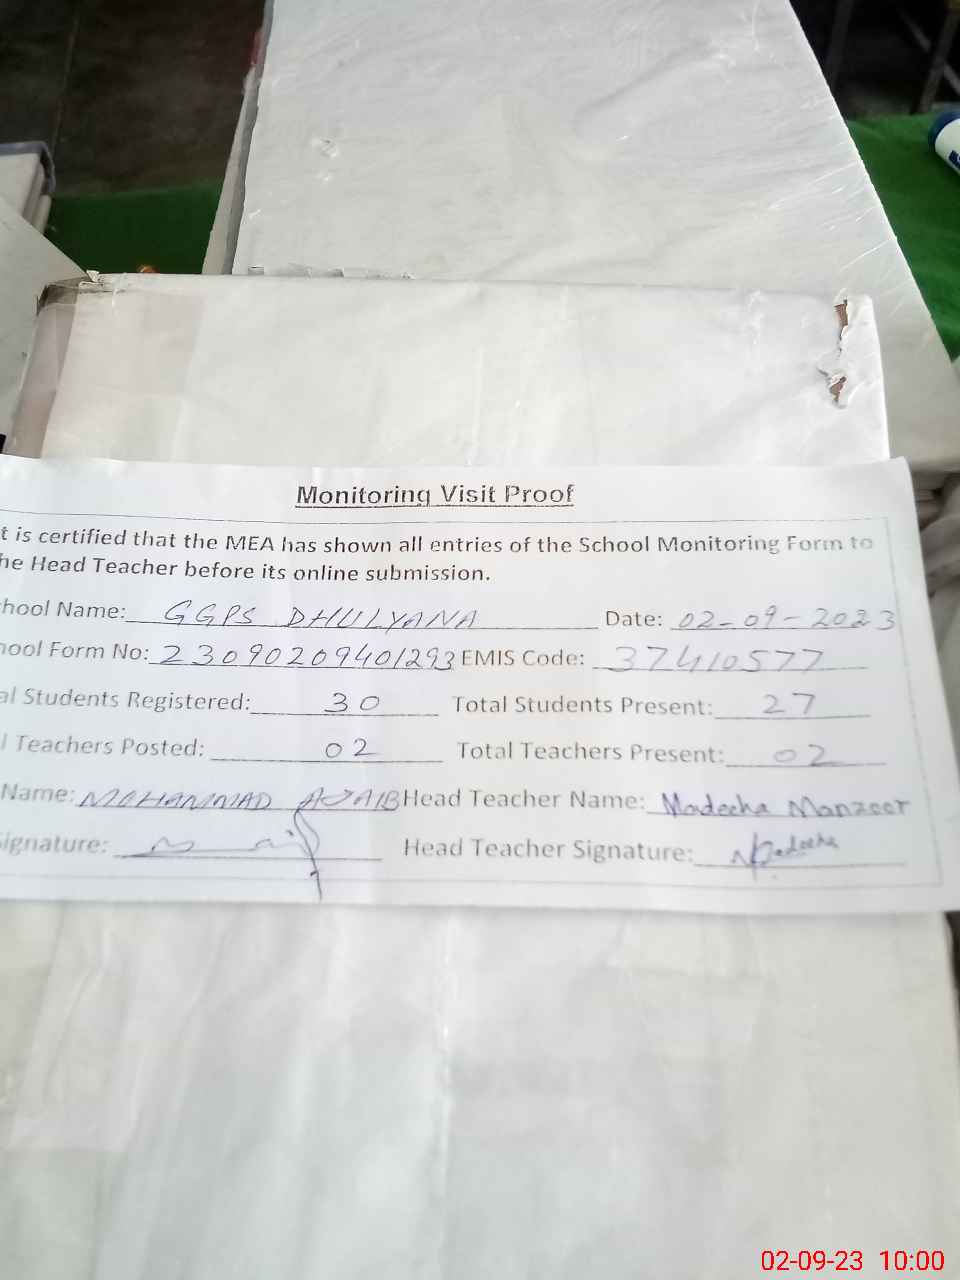 Monitoring Visit Proof
t is certified that the MEA has shown all entries of the School Monitoring Form to
he Head Teacher before its online submission.
hool Name: GGPS DHULYANA Date: 02-09-2023
hool Form No: 23090209401293 EMIS Code: 37410577
al Students Registered: 30 Total Students Present: 27
l Teachers Posted: 02 Total Teachers Present: 02
Name: MOHAMMAD AJAIB Head Teacher Name: Madeeha Manzoor
ignature: Head Teacher Signature: Madeeha
02-09-23 10:00